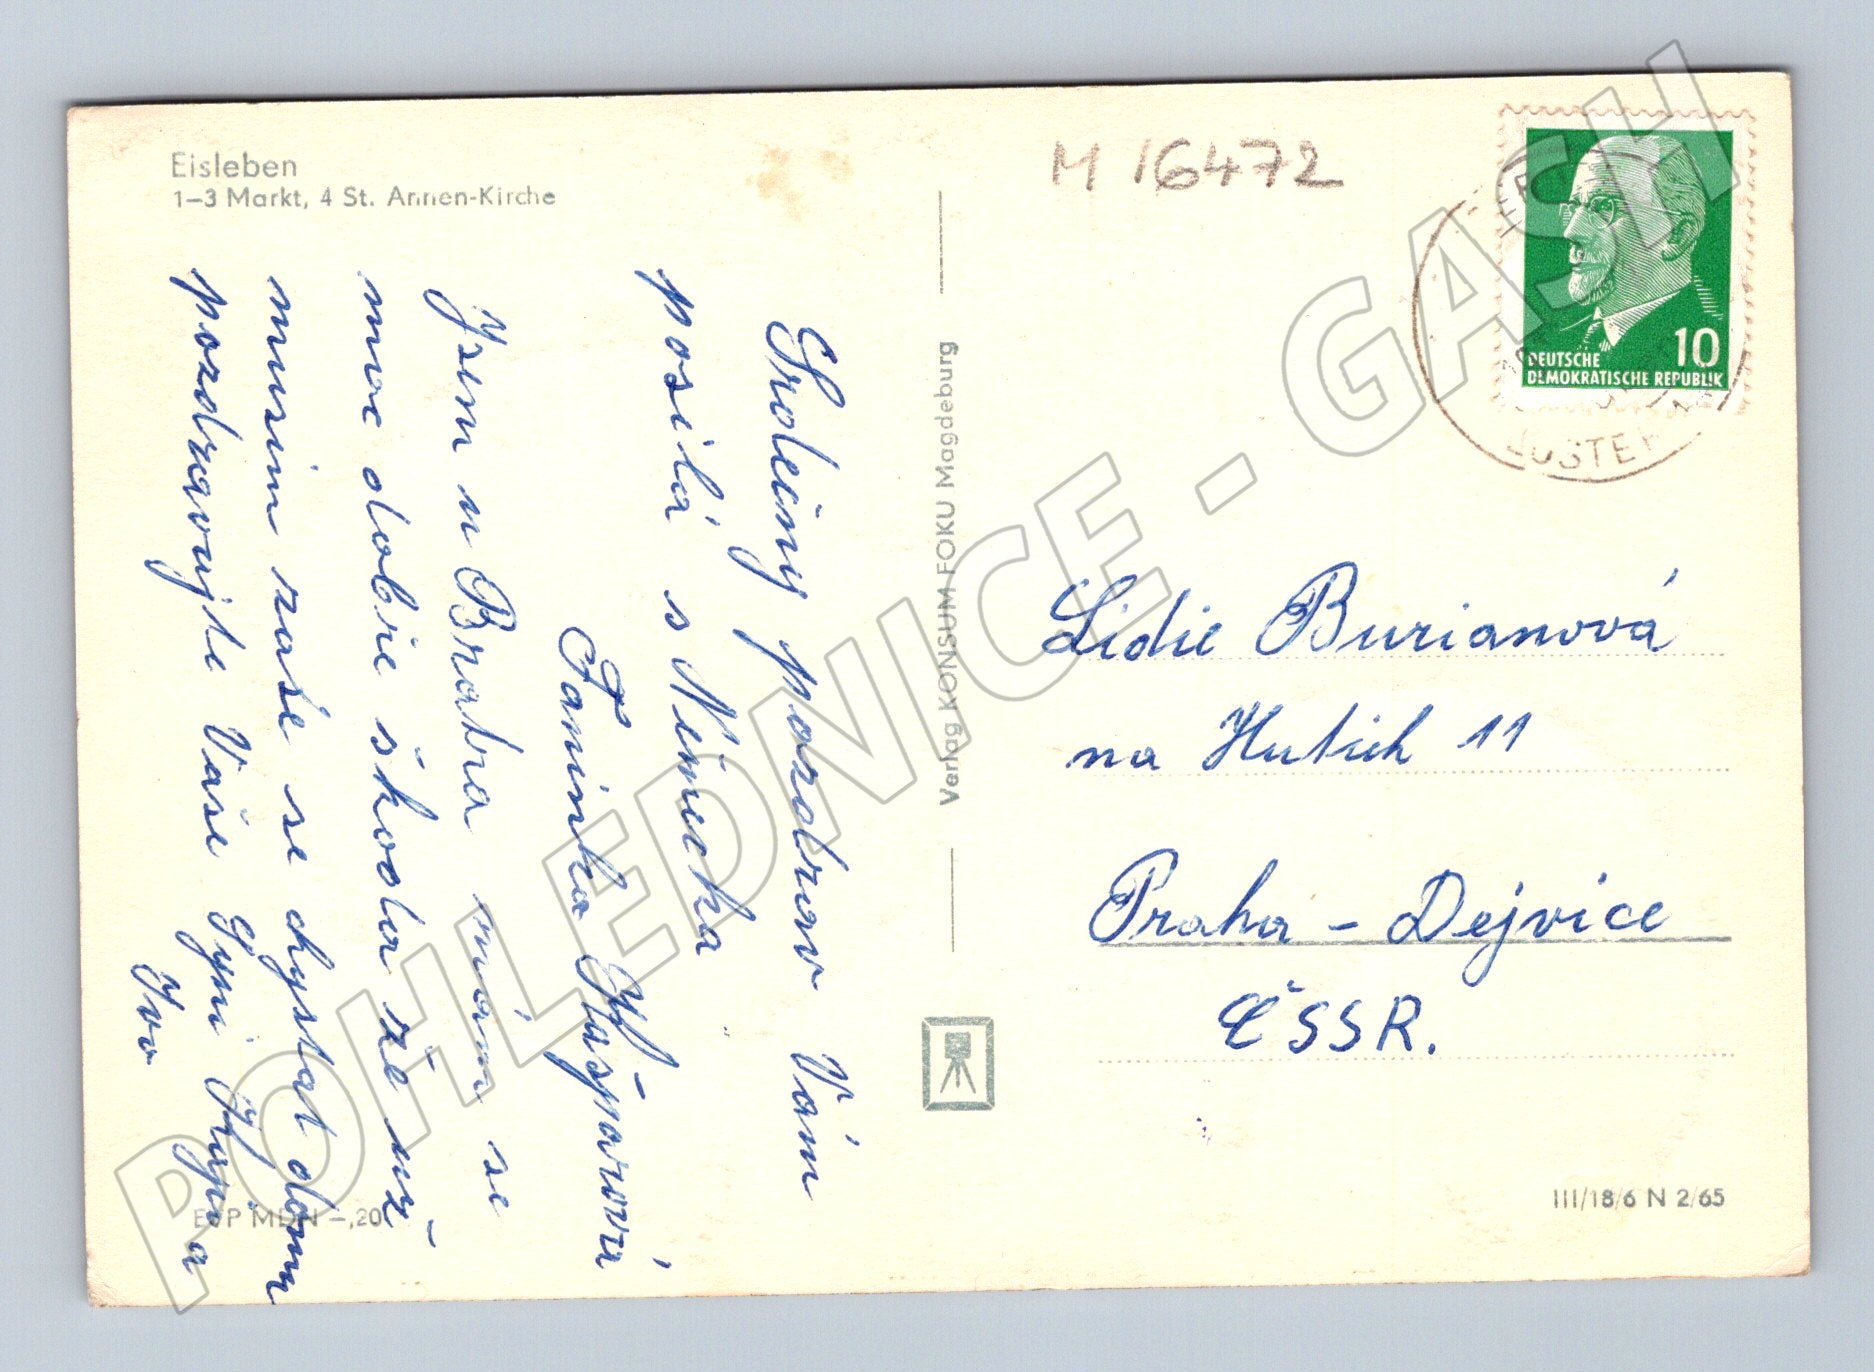 Eisleben
1–3 Markt, 4 St. Annen-Kirche
M 16472
10
DEUTSCHE
DEMOKRATISCHE REPUBLIK
Srdečný pozdrav Vám
posílá s Německa
Faninka Kašparová
Jsem u Bratra mám se
moc dobře škoda že už
musím zase se chystat domu
pozdravujte Vaše Gymi
Ivo
Verlag KONSUM FOKU Magdeburg
Lidie Burianová
na Hutích 11
Praha – Dejvice
ČSSR.
EVP MDN –,20
III/18/6 N 2/65
POHLEDNICE - GASH